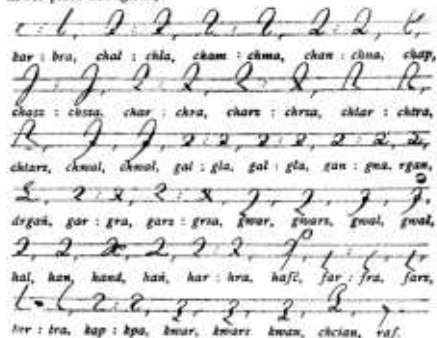 bar : bra, chal : chla, cham : chma, chan : chna, chap,
chasz : chsza, char : chra, charz : chrza, chtar : chtra,
chtarz, chmal, chmał, gal : gla, gał : gła, gan : gna, rgan,
drgań, gar : gra, garz : grza, gwar, gwarz, gwal, gwał,
hal, han, hand, hań, har : hra, hafć, far : fra, farz,
kap : kpa, kwar, kwarz, kwan, chcian, raf.